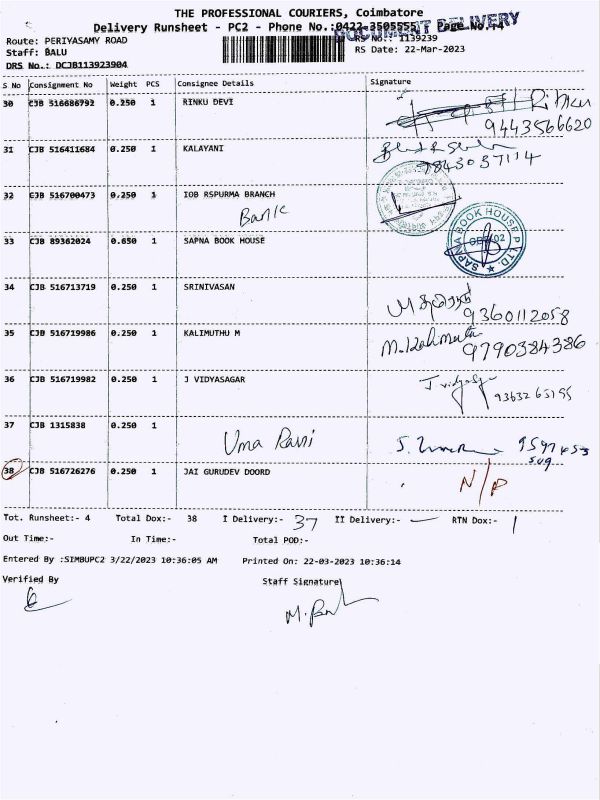 THE PROFESSIONAL COURIERS, Coimbatore
Delivery Runsheet - PC2 - Phone No.:0422-3505555 Page No.:4
DOCUMENT DELIVERY
Route: PERIYASAMY ROAD RS No.: 1139239
Staff: BALU RS Date: 22-Mar-2023
DRS No.: DCJB113923904
S No Consignment No Weight PCS Consignee Details Signature
30 CJB 516686792 0.250 1 RINKU DEVI Rinku
9443566620
31 CJB 516411684 0.250 1 KALAYANI
7843037114
32 CJB 516700473 0.250 1 IOB RSPURMA BRANCH
Bank
33 CJB 89362024 0.650 1 SAPNA BOOK HOUSE
SAPNA BOOK HOUSE PVT LTD.
34 CJB 516713719 0.250 1 SRINIVASAN
9360112058
35 CJB 516719986 0.250 1 KALIMUTHU M
9790384386
36 CJB 516719982 0.250 1 J VIDYASAGAR
9363265155
37 CJB 1315838 0.250 1
Uma Rani
38 CJB 516726276 0.250 1 JAI GURUDEV DOORD
N/P
Tot. Runsheet:- 4 Total Dox:- 38 I Delivery:- 37 II Delivery:- — RTN Dox:- 1
Out Time:- In Time:- Total POD:-
Entered By :SIMBUPC2 3/22/2023 10:36:05 AM Printed On: 22-03-2023 10:36:14
Verified By Staff Signature